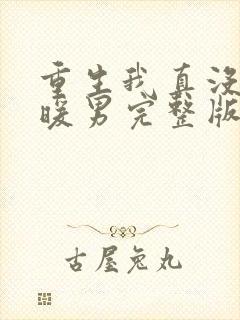 重生我真没
暖男完整版
古屋兔丸